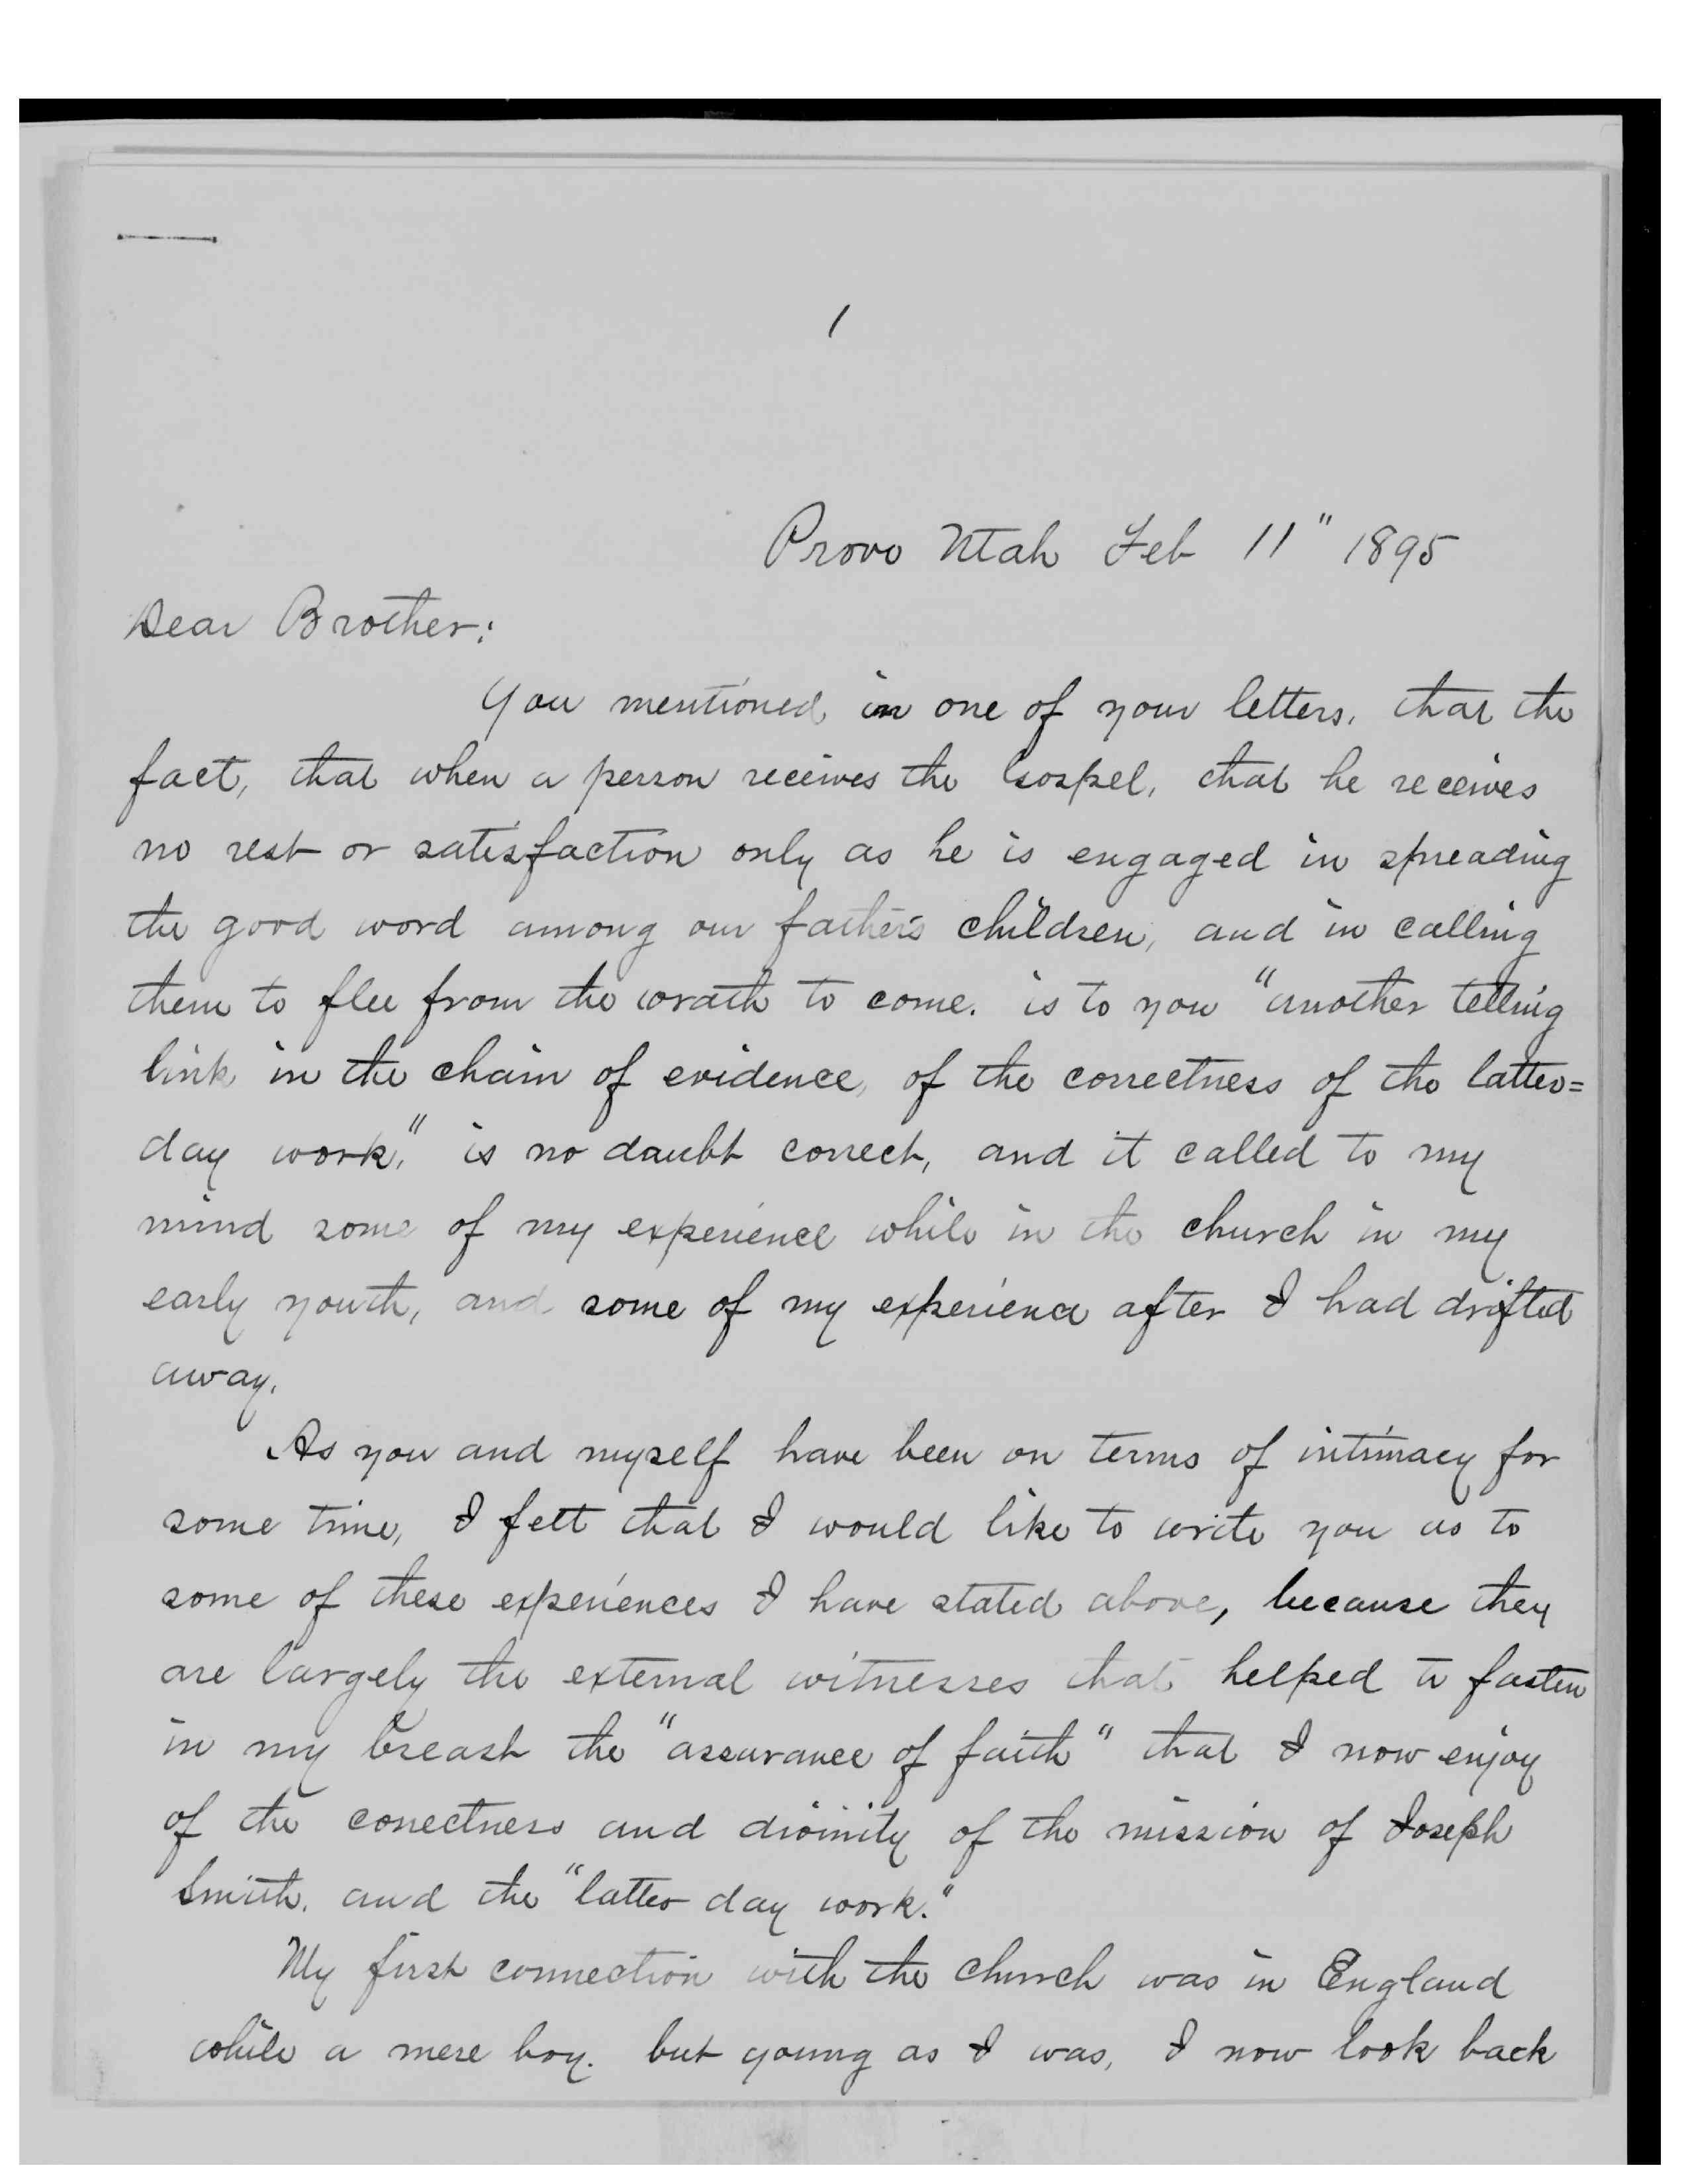 1
Provo Utah Feb 11" 1895
Dear Brother:
You mentioned in one of your letters, that the
fact, that when a person receives the Gospel, that he receives
no rest or satisfaction only as he is engaged in spreading
the good word among our father's children, and in calling
them to flee from the wrath to come. is to you "another telling
link in the chain of evidence, of the correctness of the latter=
day work," is no doubt correct, and it called to my
mind some of my experience while in the church in my
early youth, and some of my experience after I had drifted
away.
As you and myself have been on terms of intimacy for
some time, I felt that I would like to write you as to
some of these experiences I have stated above, because they
are largely the external witnesses that helped to fasten
in my breast the "assurance of faith" that I now enjoy
of the correctness and divinity of the mission of Joseph
Smith. and the "latter day work."
My first connection with the church was in England
while a mere boy. but young as I was, I now look back